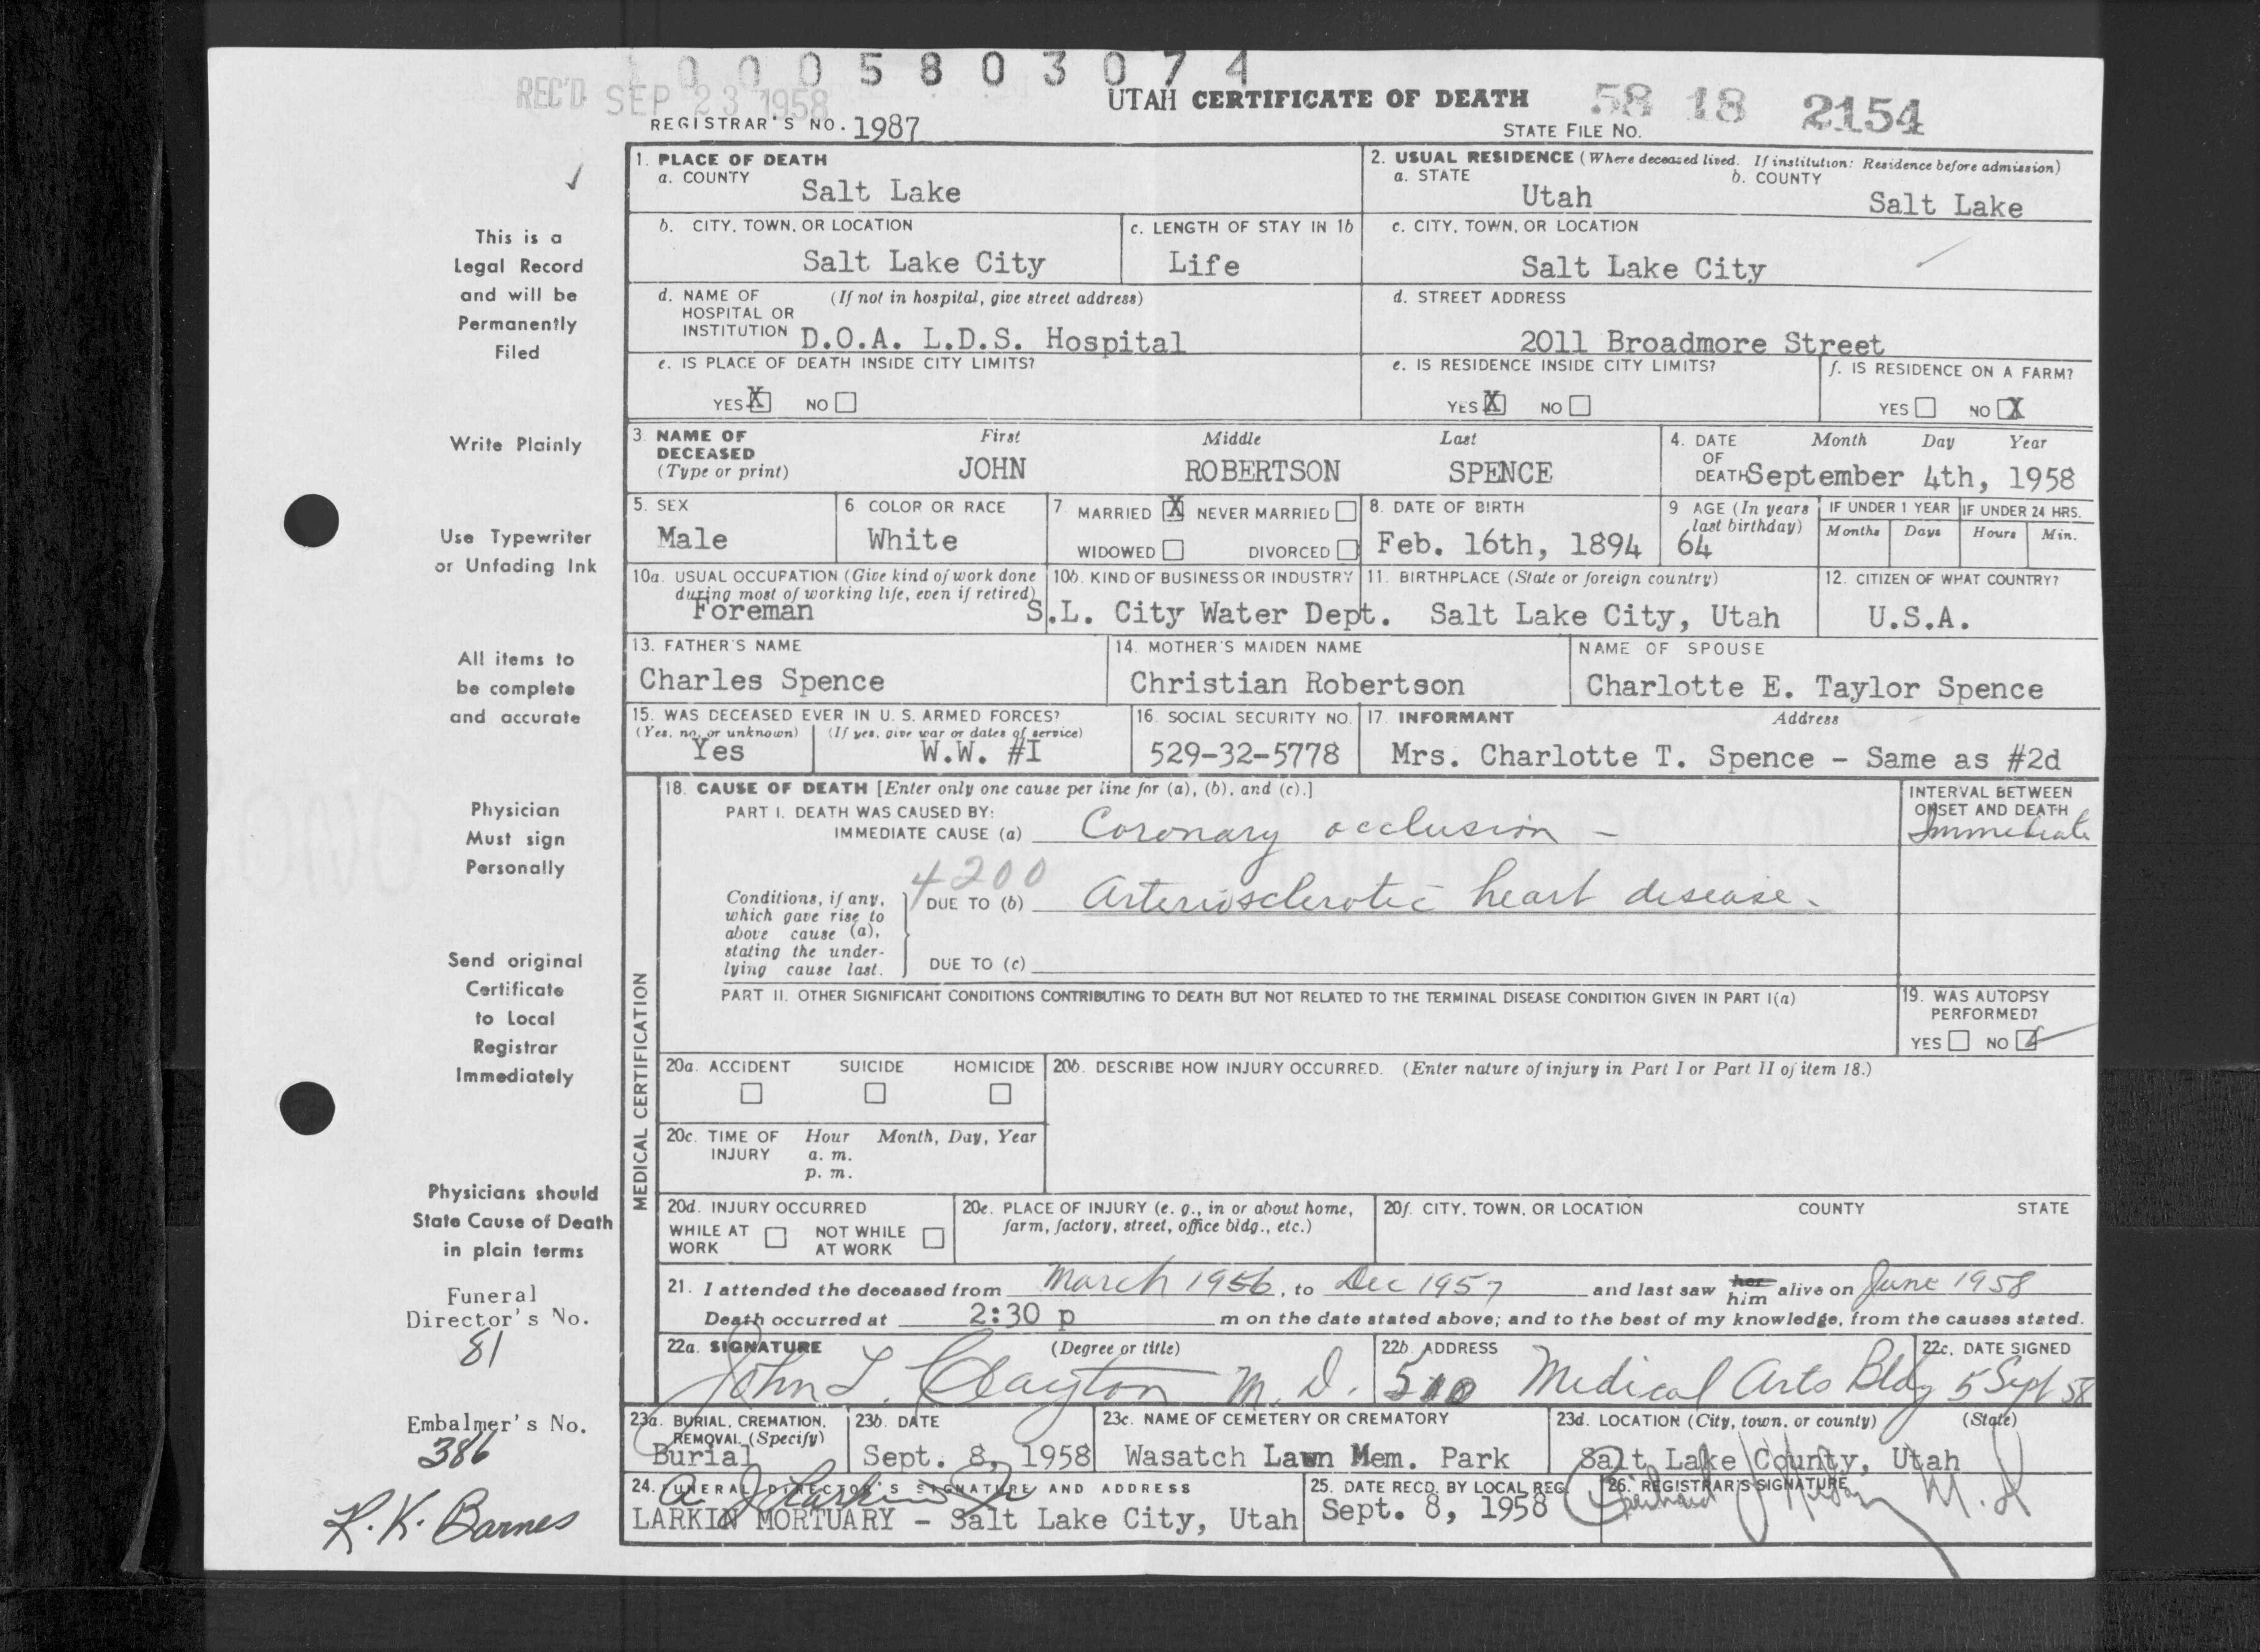 10005803074
REC'D SEP 23 1958
UTAH CERTIFICATE OF DEATH
58 18 2154
REGISTRAR'S NO. 1987
STATE FILE NO.
This is a
Legal Record
and will be
Permanently
Filed
Write Plainly
Use Typewriter
or Unfading Ink
All items to
be complete
and accurate
Physician
Must sign
Personally
Send original
Certificate
to Local
Registrar
Immediately
Physicians should
State Cause of Death
in plain terms
Funeral
Director's No.
81
Embalmer's No.
386
R. K. Barnes
1. PLACE OF DEATH
a. COUNTY
Salt Lake
2. USUAL RESIDENCE (Where deceased lived. If institution: Residence before admission)
a. STATE
Utah
b. COUNTY
Salt Lake
b. CITY, TOWN, OR LOCATION
Salt Lake City
c. LENGTH OF STAY IN 1b
Life
c. CITY, TOWN, OR LOCATION
Salt Lake City
d. NAME OF (If not in hospital, give street address)
HOSPITAL OR
INSTITUTION D.O.A. L.D.S. Hospital
d. STREET ADDRESS
2011 Broadmore Street
e. IS PLACE OF DEATH INSIDE CITY LIMITS?
YES X NO
e. IS RESIDENCE INSIDE CITY LIMITS?
YES X NO
f. IS RESIDENCE ON A FARM?
YES NO X
3. NAME OF
DECEASED
(Type or print)
First Middle Last
JOHN ROBERTSON SPENCE
4. DATE Month Day Year
OF
DEATH September 4th, 1958
5. SEX
Male
6 COLOR OR RACE
White
7 MARRIED X NEVER MARRIED
WIDOWED DIVORCED
8. DATE OF BIRTH
Feb. 16th, 1894
9 AGE (In years
last birthday)
64
IF UNDER 1 YEAR
Months Days
IF UNDER 24 HRS.
Hours Min.
10a. USUAL OCCUPATION (Give kind of work done
during most of working life, even if retired)
Foreman
10b. KIND OF BUSINESS OR INDUSTRY
S.L. City Water Dept.
11. BIRTHPLACE (State or foreign country)
Salt Lake City, Utah
12. CITIZEN OF WHAT COUNTRY?
U.S.A.
13. FATHER'S NAME
Charles Spence
14. MOTHER'S MAIDEN NAME
Christian Robertson
NAME OF SPOUSE
Charlotte E. Taylor Spence
15. WAS DECEASED EVER IN U. S. ARMED FORCES?
(Yes, no, or unknown) (If yes, give war or dates of service)
Yes W.W. #I
16. SOCIAL SECURITY NO.
529-32-5778
17. INFORMANT Address
Mrs. Charlotte T. Spence - Same as #2d
MEDICAL CERTIFICATION
18. CAUSE OF DEATH [Enter only one cause per line for (a), (b), and (c).]
PART I. DEATH WAS CAUSED BY:
IMMEDIATE CAUSE (a) Coronary occlusion -
INTERVAL BETWEEN
ONSET AND DEATH
Immediate
4200
Conditions, if any,
which gave rise to
above cause (a),
stating the under-
lying cause last.
DUE TO (b) Arteriosclerotic heart disease.
DUE TO (c)
PART II. OTHER SIGNIFICANT CONDITIONS CONTRIBUTING TO DEATH BUT NOT RELATED TO THE TERMINAL DISEASE CONDITION GIVEN IN PART I(a)
19. WAS AUTOPSY
PERFORMED?
YES NO
20a. ACCIDENT SUICIDE HOMICIDE
20b. DESCRIBE HOW INJURY OCCURRED. (Enter nature of injury in Part I or Part II of item 18.)
20c. TIME OF Hour Month, Day, Year
INJURY a. m.
p. m.
20d. INJURY OCCURRED
WHILE AT NOT WHILE
WORK AT WORK
20e. PLACE OF INJURY (e. g., in or about home,
farm, factory, street, office bldg., etc.)
20f. CITY, TOWN, OR LOCATION COUNTY STATE
21. I attended the deceased from March 1956, to Dec 1957 and last saw her him alive on June 1958
Death occurred at 2:30 p m on the date stated above; and to the best of my knowledge, from the causes stated.
22a. SIGNATURE (Degree or title)
John L. Clayton M.D.
22b. ADDRESS
510 Medical Arts Bldg
22c. DATE SIGNED
5 Sept 58
23a. BURIAL, CREMATION,
REMOVAL (Specify)
Burial
23b. DATE
Sept. 8, 1958
23c. NAME OF CEMETERY OR CREMATORY
Wasatch Lawn Mem. Park
23d. LOCATION (City, town, or county) (State)
Salt Lake County, Utah
24. FUNERAL DIRECTOR'S SIGNATURE AND ADDRESS
LARKIN MORTUARY - Salt Lake City, Utah
25. DATE RECD. BY LOCAL REG.
Sept. 8, 1958
26. REGISTRAR'S SIGNATURE
M.D